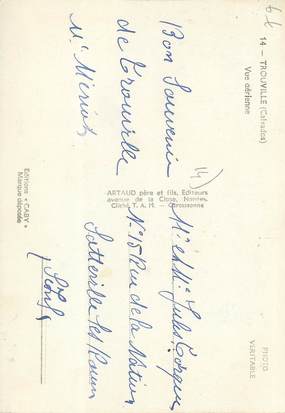 6 k
14 — TROUVILLE (Calvados)
Vue aérienne
Bon Souvenir
de Trouville
14)
ARTAUD père et fils, Editeurs
avenue de la Close, Nantes.
Cliché T. A. H. — Carcassonne
Editions « GABY »
Marque déposée
PHOTO
VERITABLE
Mr et Me Jules
N° 15 Rue de la Nation
Sotteville les Rouen